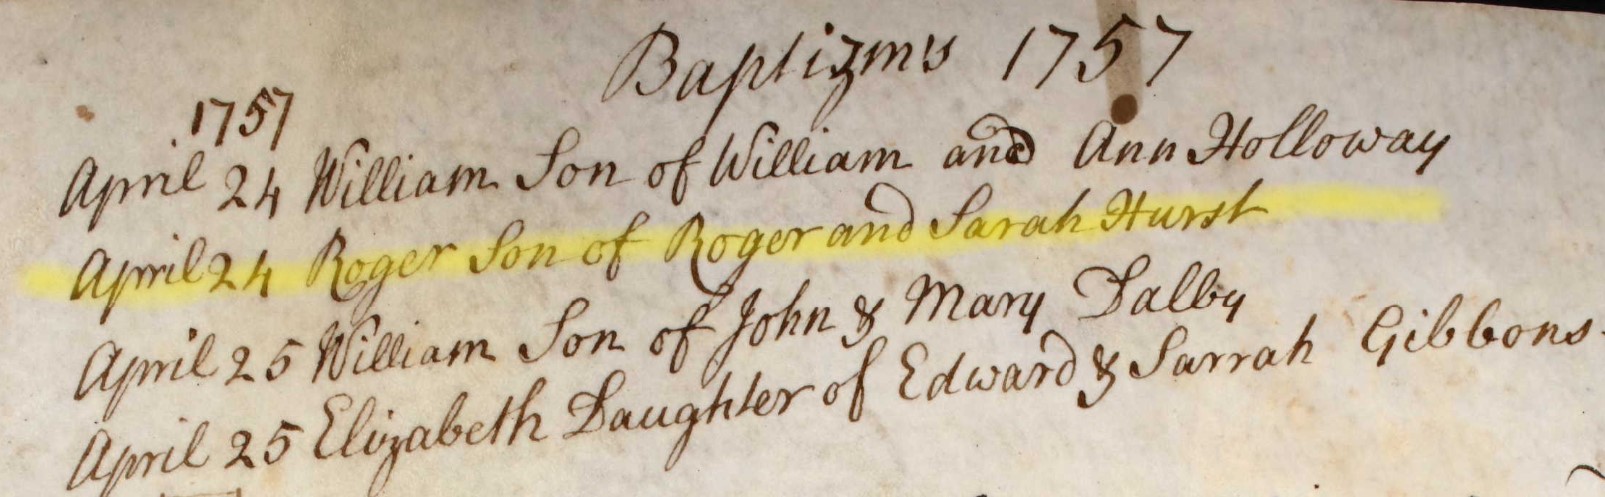 Baptizms 1757
1757
April 24 William Son of William and Ann Holloway
April 24 Roger Son of Roger and Sarah Hurst
April 25 William Son of John & Mary Dalby
April 25 Elizabeth Daughter of Edward & Sarrah Gibbons